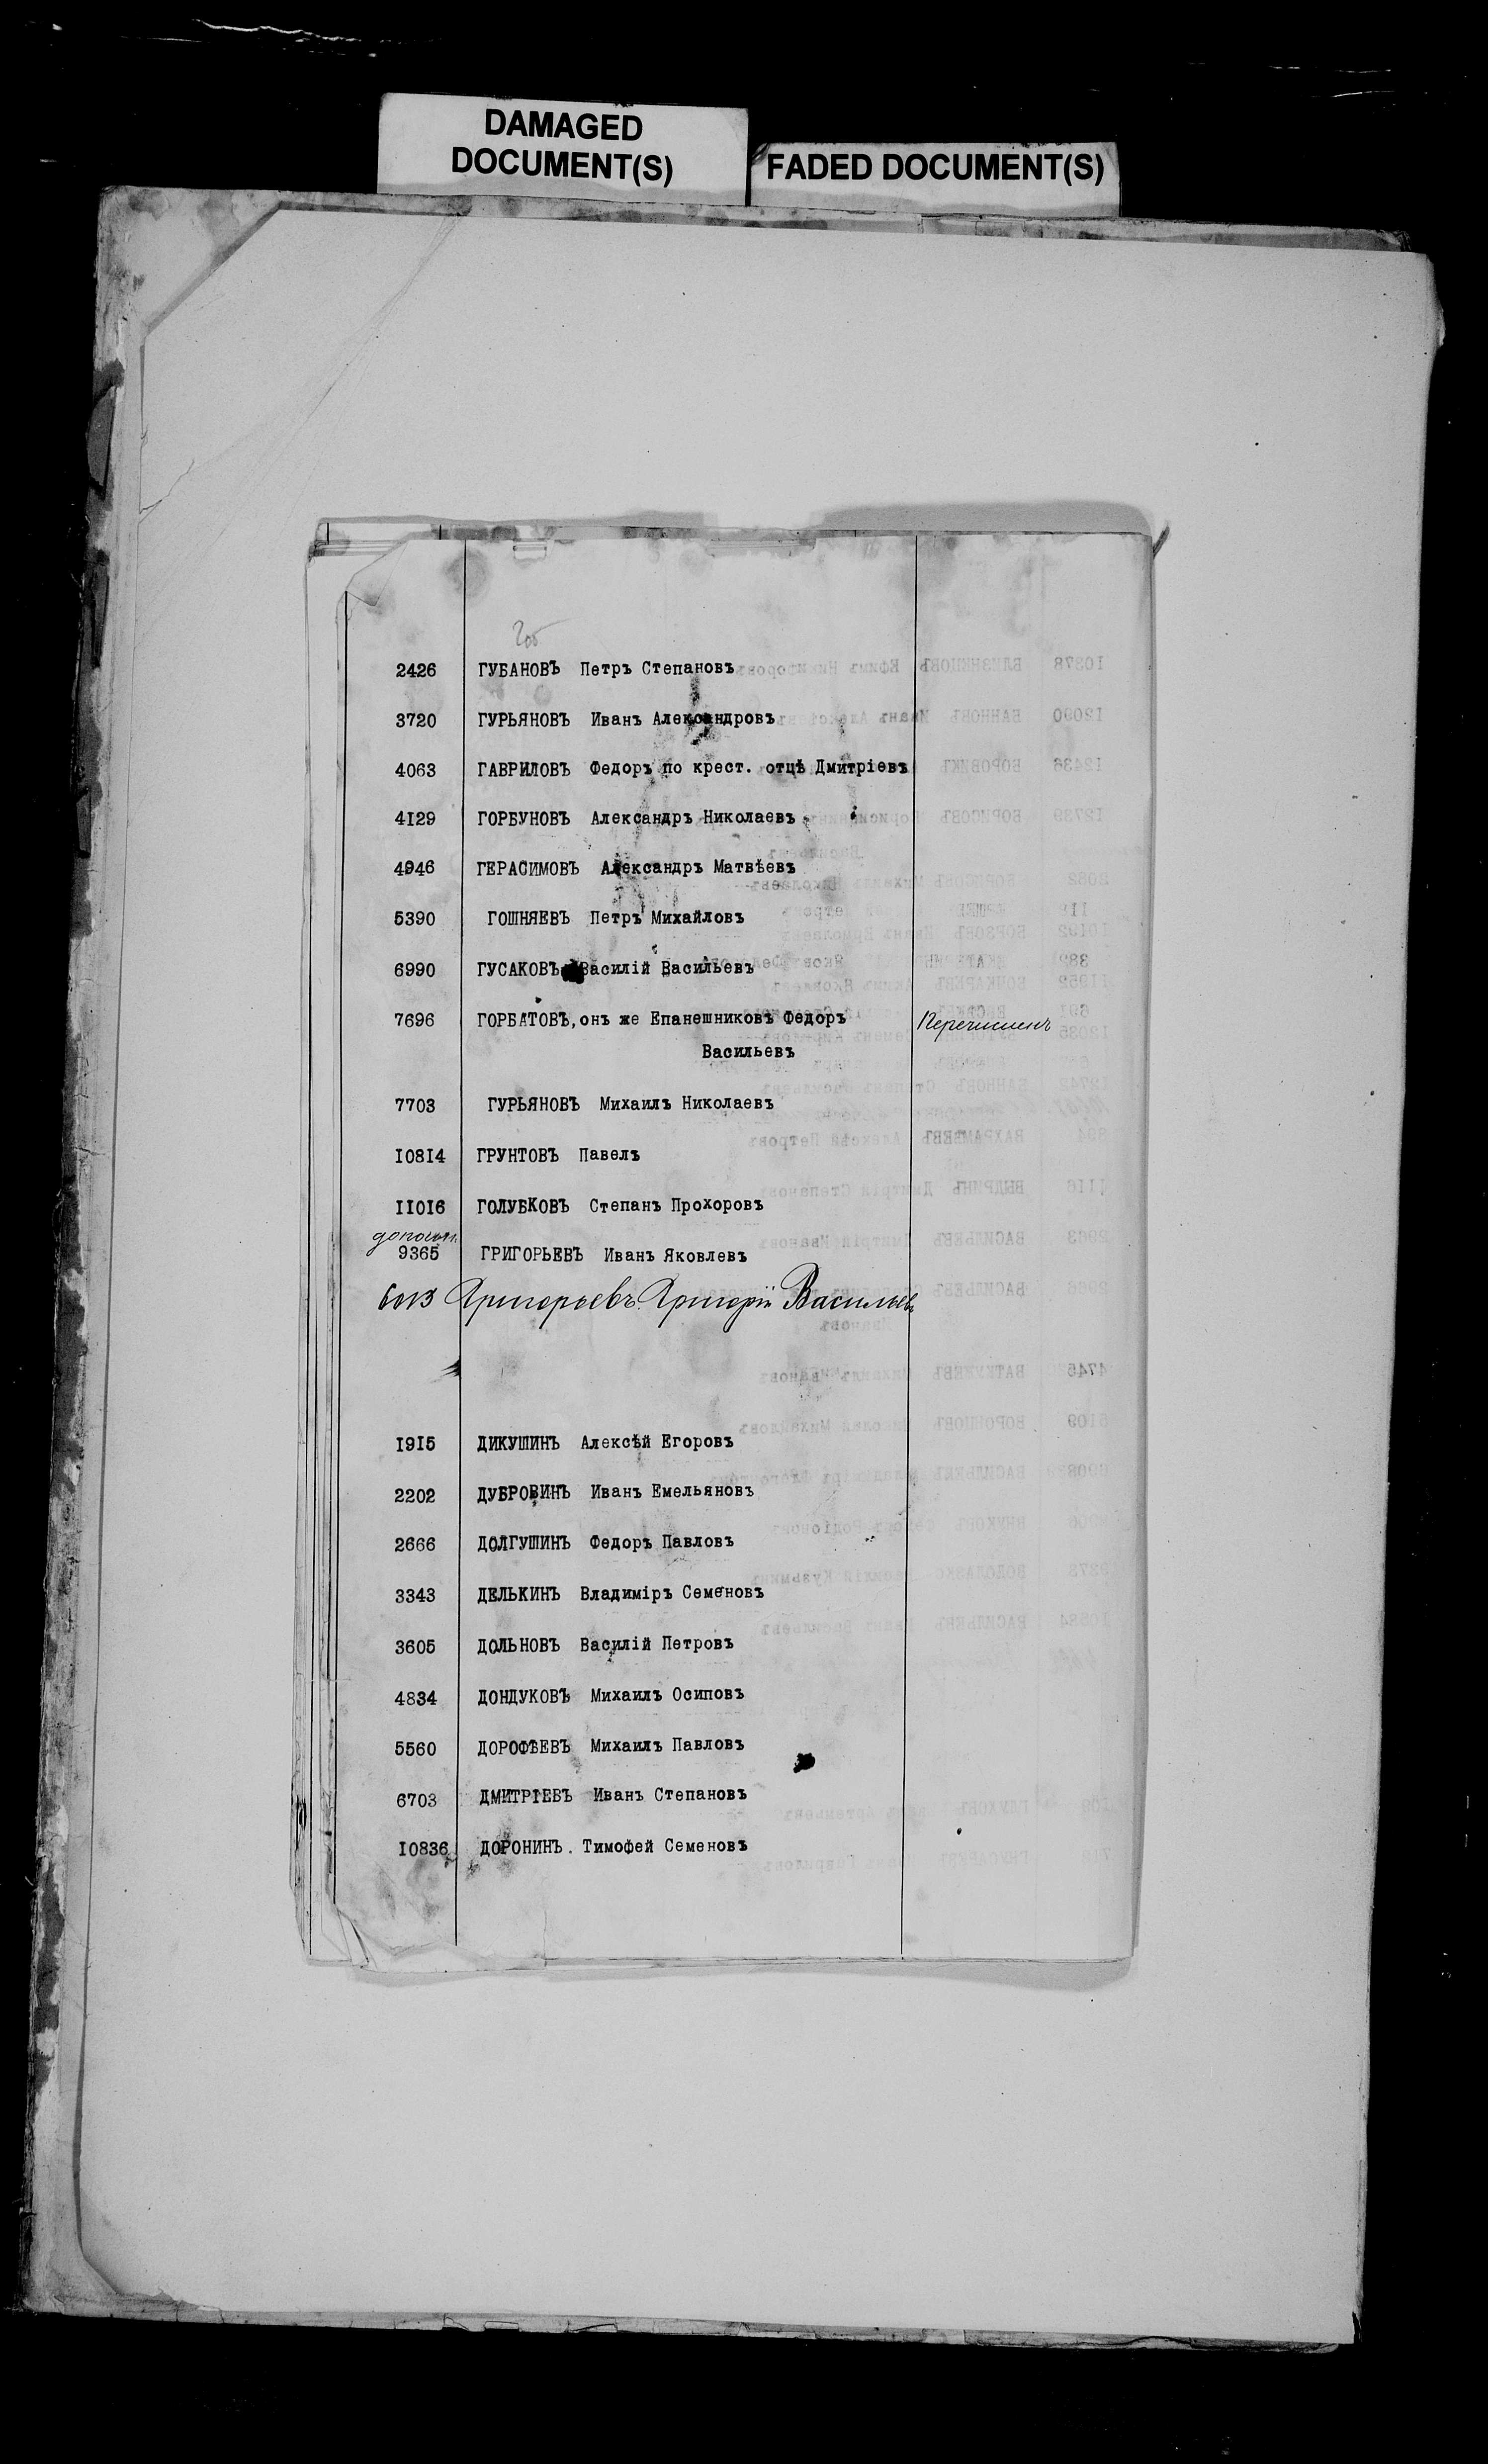 DAMAGED
DOCUMENT(S)
FADED DOCUMENT(S)
2426 ГУБАНОВЪ Петръ Степановъ
3720 ГУРЬЯНОВЪ Иванъ Александровъ
4063 ГАВРИЛОВЪ Федоръ по крест. отцѣ Дмитріевъ
4129 ГОРБУНОВЪ Александръ Николаевъ
4946 ГЕРАСИМОВЪ Александръ Матвѣевъ
5390 ГОШНЯЕВЪ Петръ Михайловъ
6990 ГУСАКОВЪ Василій Васильевъ
7696 ГОРБАТОВЪ, онъ же Епанешниковъ Федоръ Перечисленъ
Васильевъ
7703 ГУРЬЯНОВЪ Михаилъ Николаевъ
10814 ГРУНТОВЪ Павелъ
11016 ГОЛУБКОВЪ Степанъ Прохоровъ
9365 ГРИГОРЬЕВЪ Иванъ Яковлевъ
Григорьевъ Григорій Васильевъ
1915 ДИКУШИНЪ Алексѣй Егоровъ
2202 ДУБРОВИНЪ Иванъ Емельяновъ
2666 ДОЛГУШИНЪ Федоръ Павловъ
3343 ДЕЛЬКИНЪ Владиміръ Семеновъ
3605 ДОЛЬНОВЪ Василій Петровъ
4834 ДОНДУКОВЪ Михаилъ Осиповъ
5560 ДОРОФѢЕВЪ Михаилъ Павловъ
6703 ДМИТРІЕВЪ Иванъ Степановъ
10836 ДОРОНИНЪ. Тимофей Семеновъ